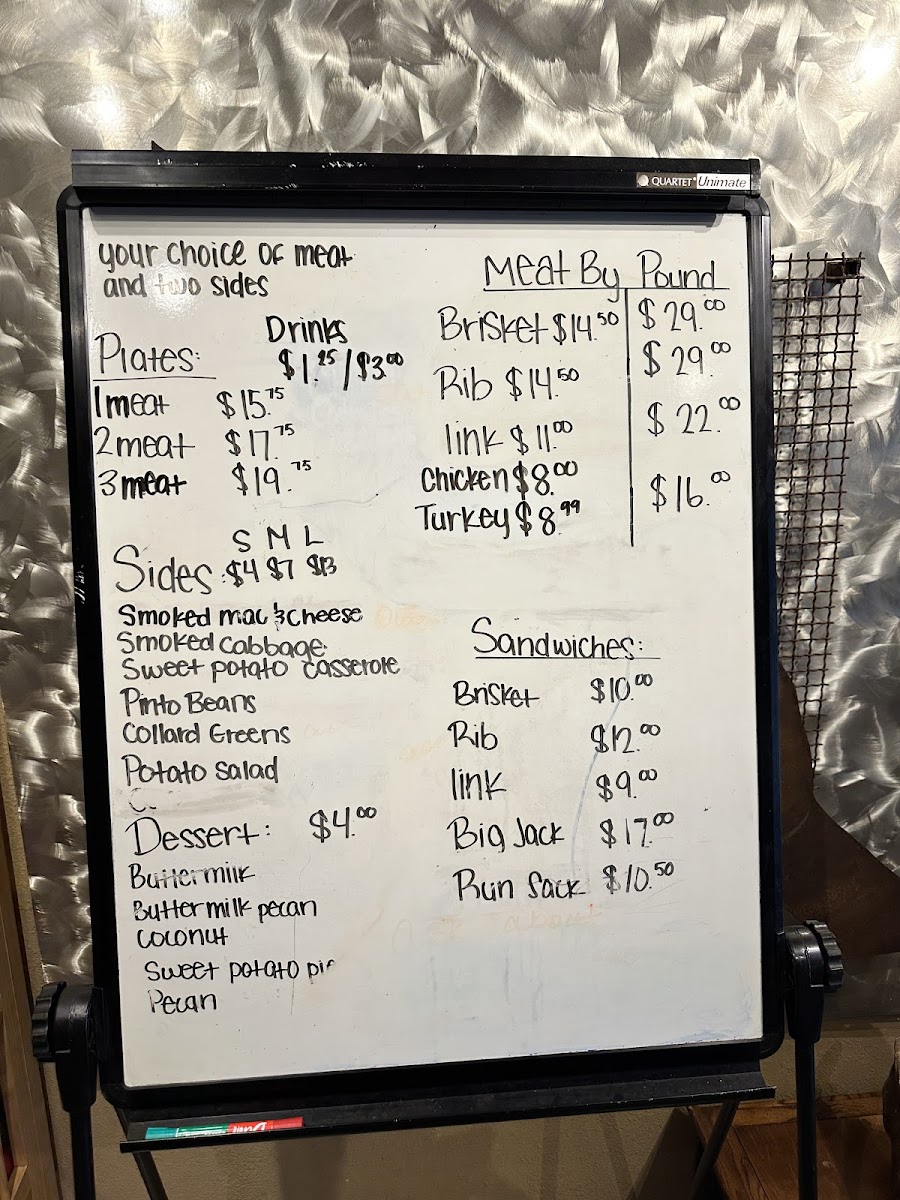 QUARTET Unimate
your choice of meat
and two sides
Drinks
$1.25/$3.00
Plates:
1 meat $15.75
2 meat $17.75
3 meat $19.75
S M L
Sides: $4 $7 $13
Smoked mac & cheese
Smoked Cabbage
Sweet potato casserole
Pinto Beans
Collard Greens
Potato Salad
Dessert: $4.00
Buttermilk
Buttermilk pecan
Coconut
Sweet potato pie
Pecan
Meat By Pound
Brisket $14.50 $29.00
Rib $14.50 $29.00
link $11.00 $22.00
Chicken $8.00 $16.00
Turkey $8.99
Sandwiches:
Brisket $10.00
Rib $12.00
link $9.00
Big Jack $17.00
Run Sack $10.50